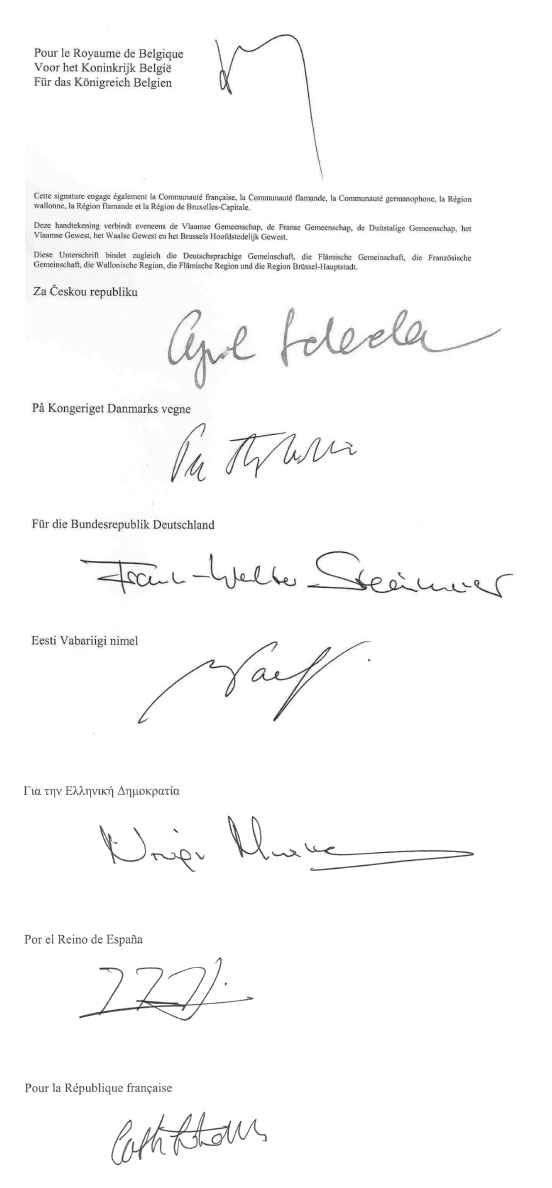 Pour le Royaume de Belgique
Voor het Koninkrijk België
Für das Königreich Belgien
Cette signature engage également la Communauté française, la Communauté flamande, la Communauté germanophone, la Région
wallonne, la Région flamande et la Région de Bruxelles-Capitale.
Deze handtekening verbindt eveneens de Vlaamse Gemeenschap, de Franse Gemeenschap, de Duitstalige Gemeenschap, het
Vlaamse Gewest, het Waalse Gewest en het Brussels Hoofdstedelijk Gewest.
Diese Unterschrift bindet zugleich die Deutschsprachige Gemeinschaft, die Flämische Gemeinschaft, die Französische
Gemeinschaft, die Wallonische Region, die Flämische Region und die Region Brüssel-Hauptstadt.
Za Českou republiku
På Kongeriget Danmarks vegne
Für die Bundesrepublik Deutschland
Frank-Walter Steinmeier
Eesti Vabariigi nimel
Για την Ελληνική Δημοκρατία
Por el Reino de España
Pour la République française